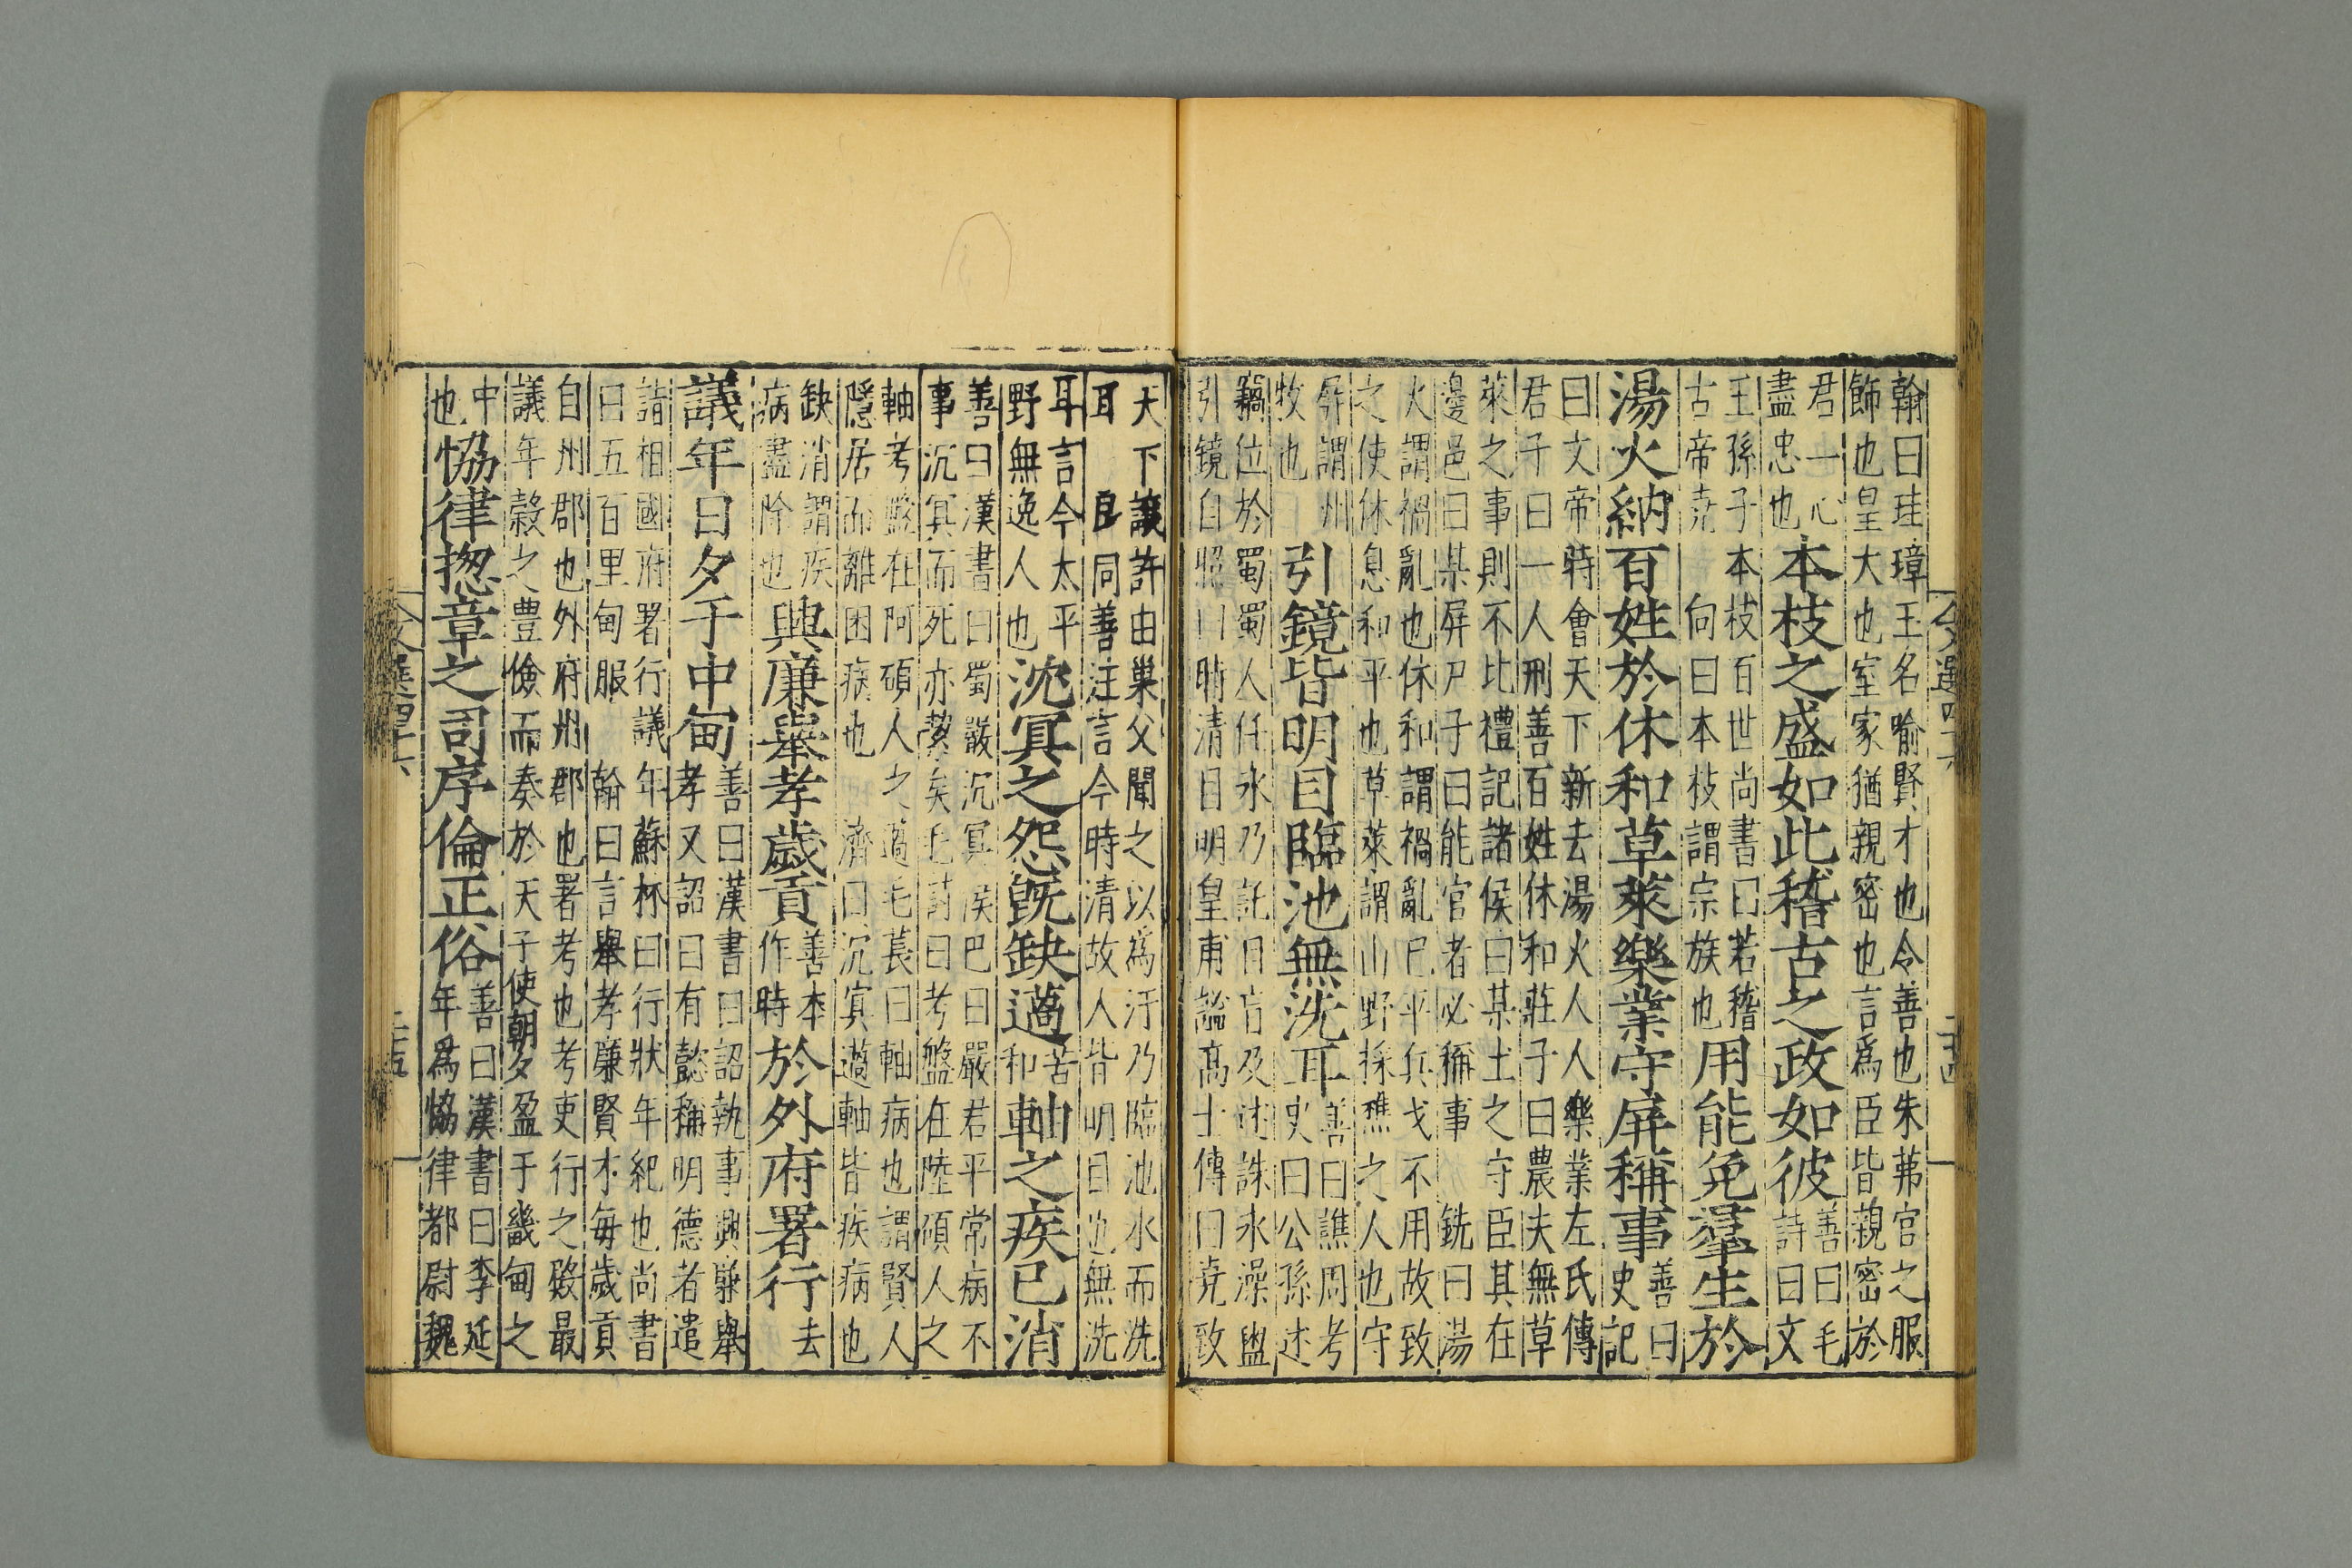 翰曰珪璋玉名喻賢才也令善也朱茀官之服
飾也皇大也室家猶親密也言爲臣皆親密於
君一心盡忠也本枝之盛如此稽古之政如彼善曰毛詩曰文
王孫子本枝百世尚書曰若稽古帝堯 向曰本枝謂宗族也用能免羣生於
湯火納百姓於休和草萊樂業守屏稱事善曰史記
曰文帝時會天下新去湯火人人樂業左氏傳
君子曰一人刑善百姓休和莊子曰農夫無草
萊之事則不比禮記諸侯曰某土之守臣其在
邊邑曰某屏尸子曰能官者必稱事 銑曰湯
火謂禍亂也休和謂禍亂已平兵戈不用故致
之使休息和平也草萊謂山野採樵之人也守
屏謂州牧也引鏡皆明目臨池無洗耳善曰譙周考史曰公孫述
竊位於蜀蜀人任永乃託目盲及述誅永澡盥
引鏡自照曰時清目明皇甫謐高士傳曰堯致
天下讓許由巢父聞之以爲汙乃臨池水而洗
耳 良同善注言今時清故人皆明目也無洗
耳言今太平野無逸人也沈冥之怨旣缺薖苦和軸之疾已消
善曰漢書曰蜀嚴沉冥 侯巴曰嚴君平常病不
事沉冥而死亦絜矣毛詩曰考盤在陸碩人之
軸考盤在阿碩人之薖毛萇曰軸病也謂賢人
隱居而離困病也 濟曰沉冥薖軸皆疾病也
缺消謂疾病盡除也興廉舉孝歲貢善本作時於外府署行去
議年日夕于中甸善曰漢書曰詔執事興廉舉孝又詔曰有懿稱明德者遣
詣相國府署行議年蘇林曰行狀年紀也尚書
曰五百里甸服 翰曰言舉孝廉賢才每歲貢
自州郡也外府州郡也署考也考吏行之殿最
議年穀之豊儉而奏於天子使朝夕盈于畿甸之
中也恊律揔章之司序倫正俗善曰漢書曰李延年爲恊律都尉魏